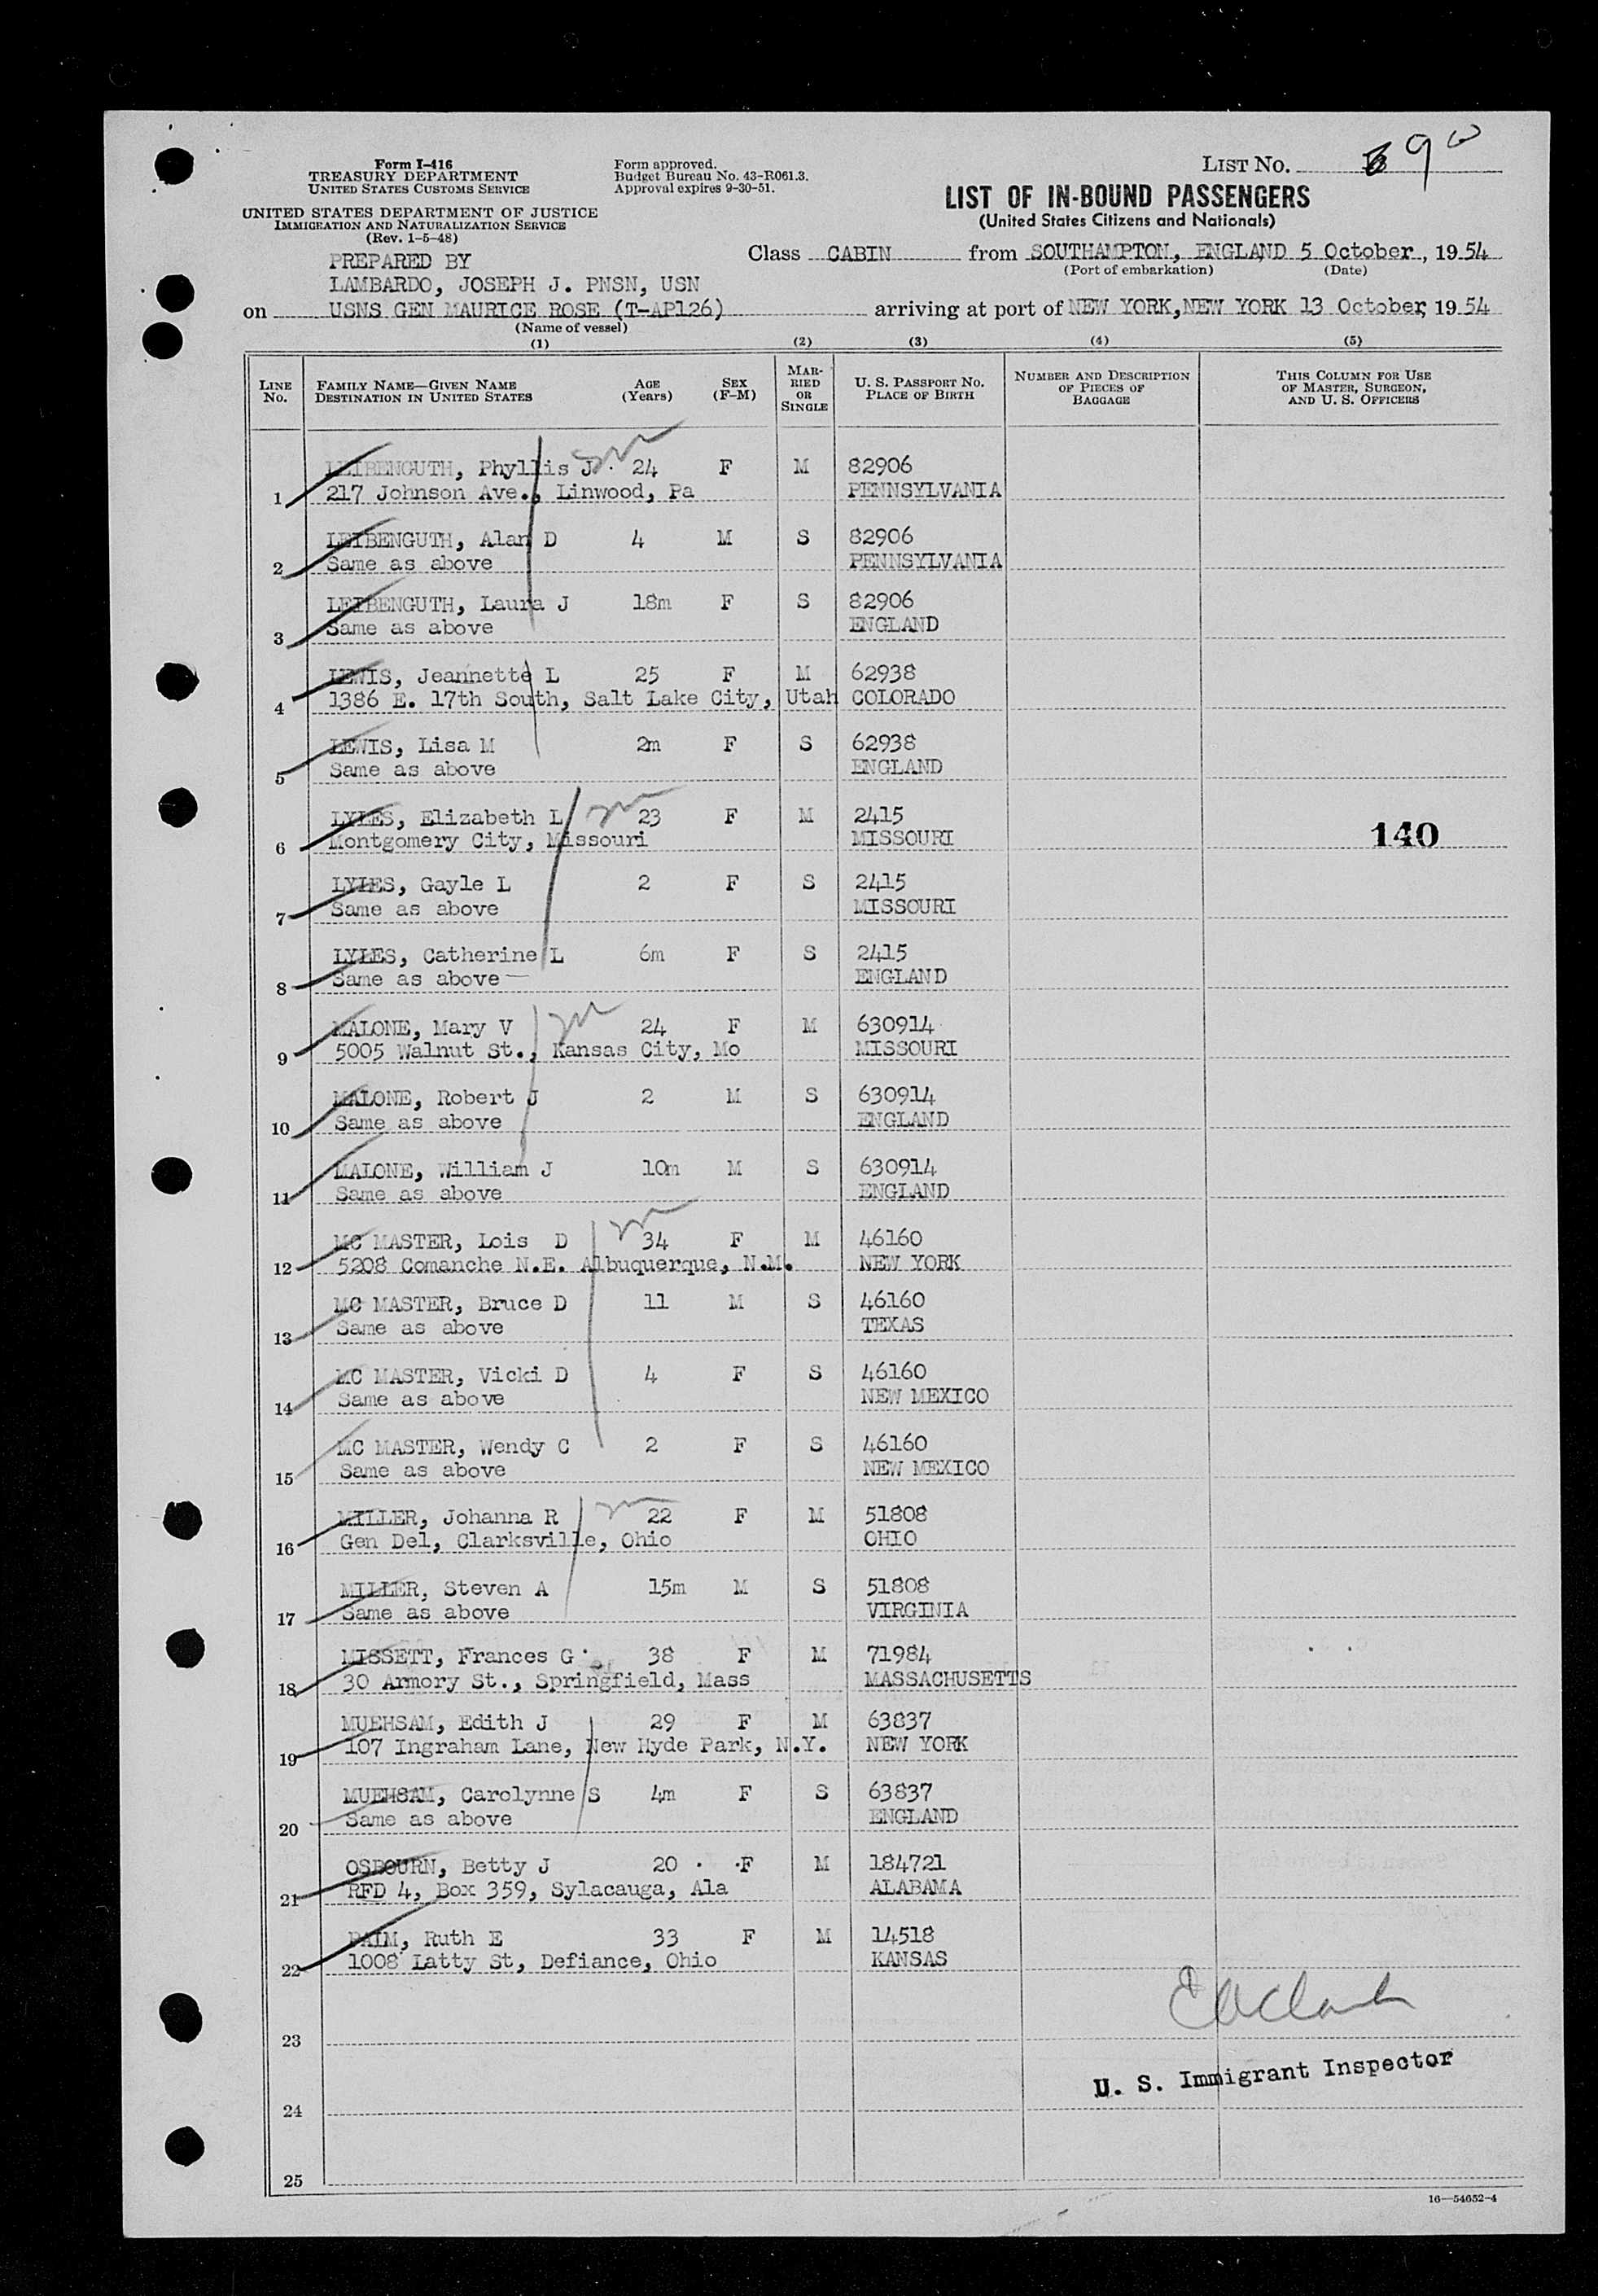 Form I-416
TREASURY DEPARTMENT
UNITED STATES CUSTOMS SERVICE
UNITED STATES DEPARTMENT OF JUSTICE
IMMIGRATION AND NATURALIZATION SERVICE
(Rev. 1-5-48)
Form approved.
Budget Bureau No. 43-R061.3.
Approval expires 9-30-51.
LIST NO. 9
LIST OF IN-BOUND PASSENGERS
(United States Citizens and Nationals)
PREPARED BY
LAMBARDO, JOSEPH J. PNSN, USN
Class CABIN from SOUTHAMPTON, ENGLAND 5 October, 1954
(Port of embarkation) (Date)
on USNS GEN MAURICE ROSE (T-AP126) arriving at port of NEW YORK, NEW YORK 13 October, 1954
(Name of vessel)
(1) (2) (3) (4) (5)
LINE No. FAMILY NAME—GIVEN NAME DESTINATION IN UNITED STATES AGE (Years) SEX (F-M) MARRIED OR SINGLE U. S. PASSPORT No. PLACE OF BIRTH NUMBER AND DESCRIPTION OF PIECES OF BAGGAGE THIS COLUMN FOR USE OF MASTER, SURGEON, AND U. S. OFFICERS
LEIBENGUTH, Phyllis J. 24 F M 82906
1 217 Johnson Ave., Linwood, Pa PENNSYLVANIA
LEIBENGUTH, Alan D 4 M S 82906
2 Same as above PENNSYLVANIA
LEIBENGUTH, Laura J 18m F S 82906
3 Same as above ENGLAND
LEWIS, Jeannette L 25 F M 62938
4 1386 E. 17th South, Salt Lake City, Utah COLORADO
LEWIS, Lisa M 2m F S 62938
5 Same as above ENGLAND
LYLES, Elizabeth L 23 F M 2415
6 Montgomery City, Missouri MISSOURI 140
LYLES, Gayle L 2 F S 2415
7 Same as above MISSOURI
LYLES, Catherine L 6m F S 2415
8 Same as above ENGLAND
MALONE, Mary V 24 F M 630914
9 5005 Walnut St., Kansas City, Mo MISSOURI
MALONE, Robert J 2 M S 630914
10 Same as above ENGLAND
MALONE, William J 10m M S 630914
11 Same as above ENGLAND
MC MASTER, Lois D 34 F M 46160
12 5208 Comanche N.E. Albuquerque, N.M. NEW YORK
MC MASTER, Bruce D 11 M S 46160
13 Same as above TEXAS
MC MASTER, Vicki D 4 F S 46160
14 Same as above NEW MEXICO
MC MASTER, Wendy C 2 F S 46160
15 Same as above NEW MEXICO
MILLER, Johanna R 22 F M 51808
16 Gen Del, Clarksville, Ohio OHIO
MILLER, Steven A 15m M S 51808
17 Same as above VIRGINIA
MISSETT, Frances G 38 F M 71984
18 30 Armory St., Springfield, Mass MASSACHUSETTS
MUEHSAM, Edith J 29 F M 63837
19 107 Ingraham Lane, New Hyde Park, N.Y. NEW YORK
MUEHSAM, Carolynne S 4m F S 63837
20 Same as above ENGLAND
OSBOURN, Betty J 20 F M 184721
21 RFD 4, Box 359, Sylacauga, Ala ALABAMA
PAIM, Ruth E 33 F M 14518
22 1008 Latty St, Defiance, Ohio KANSAS
23
U. S. Immigrant Inspector
24
25
16—54652-4